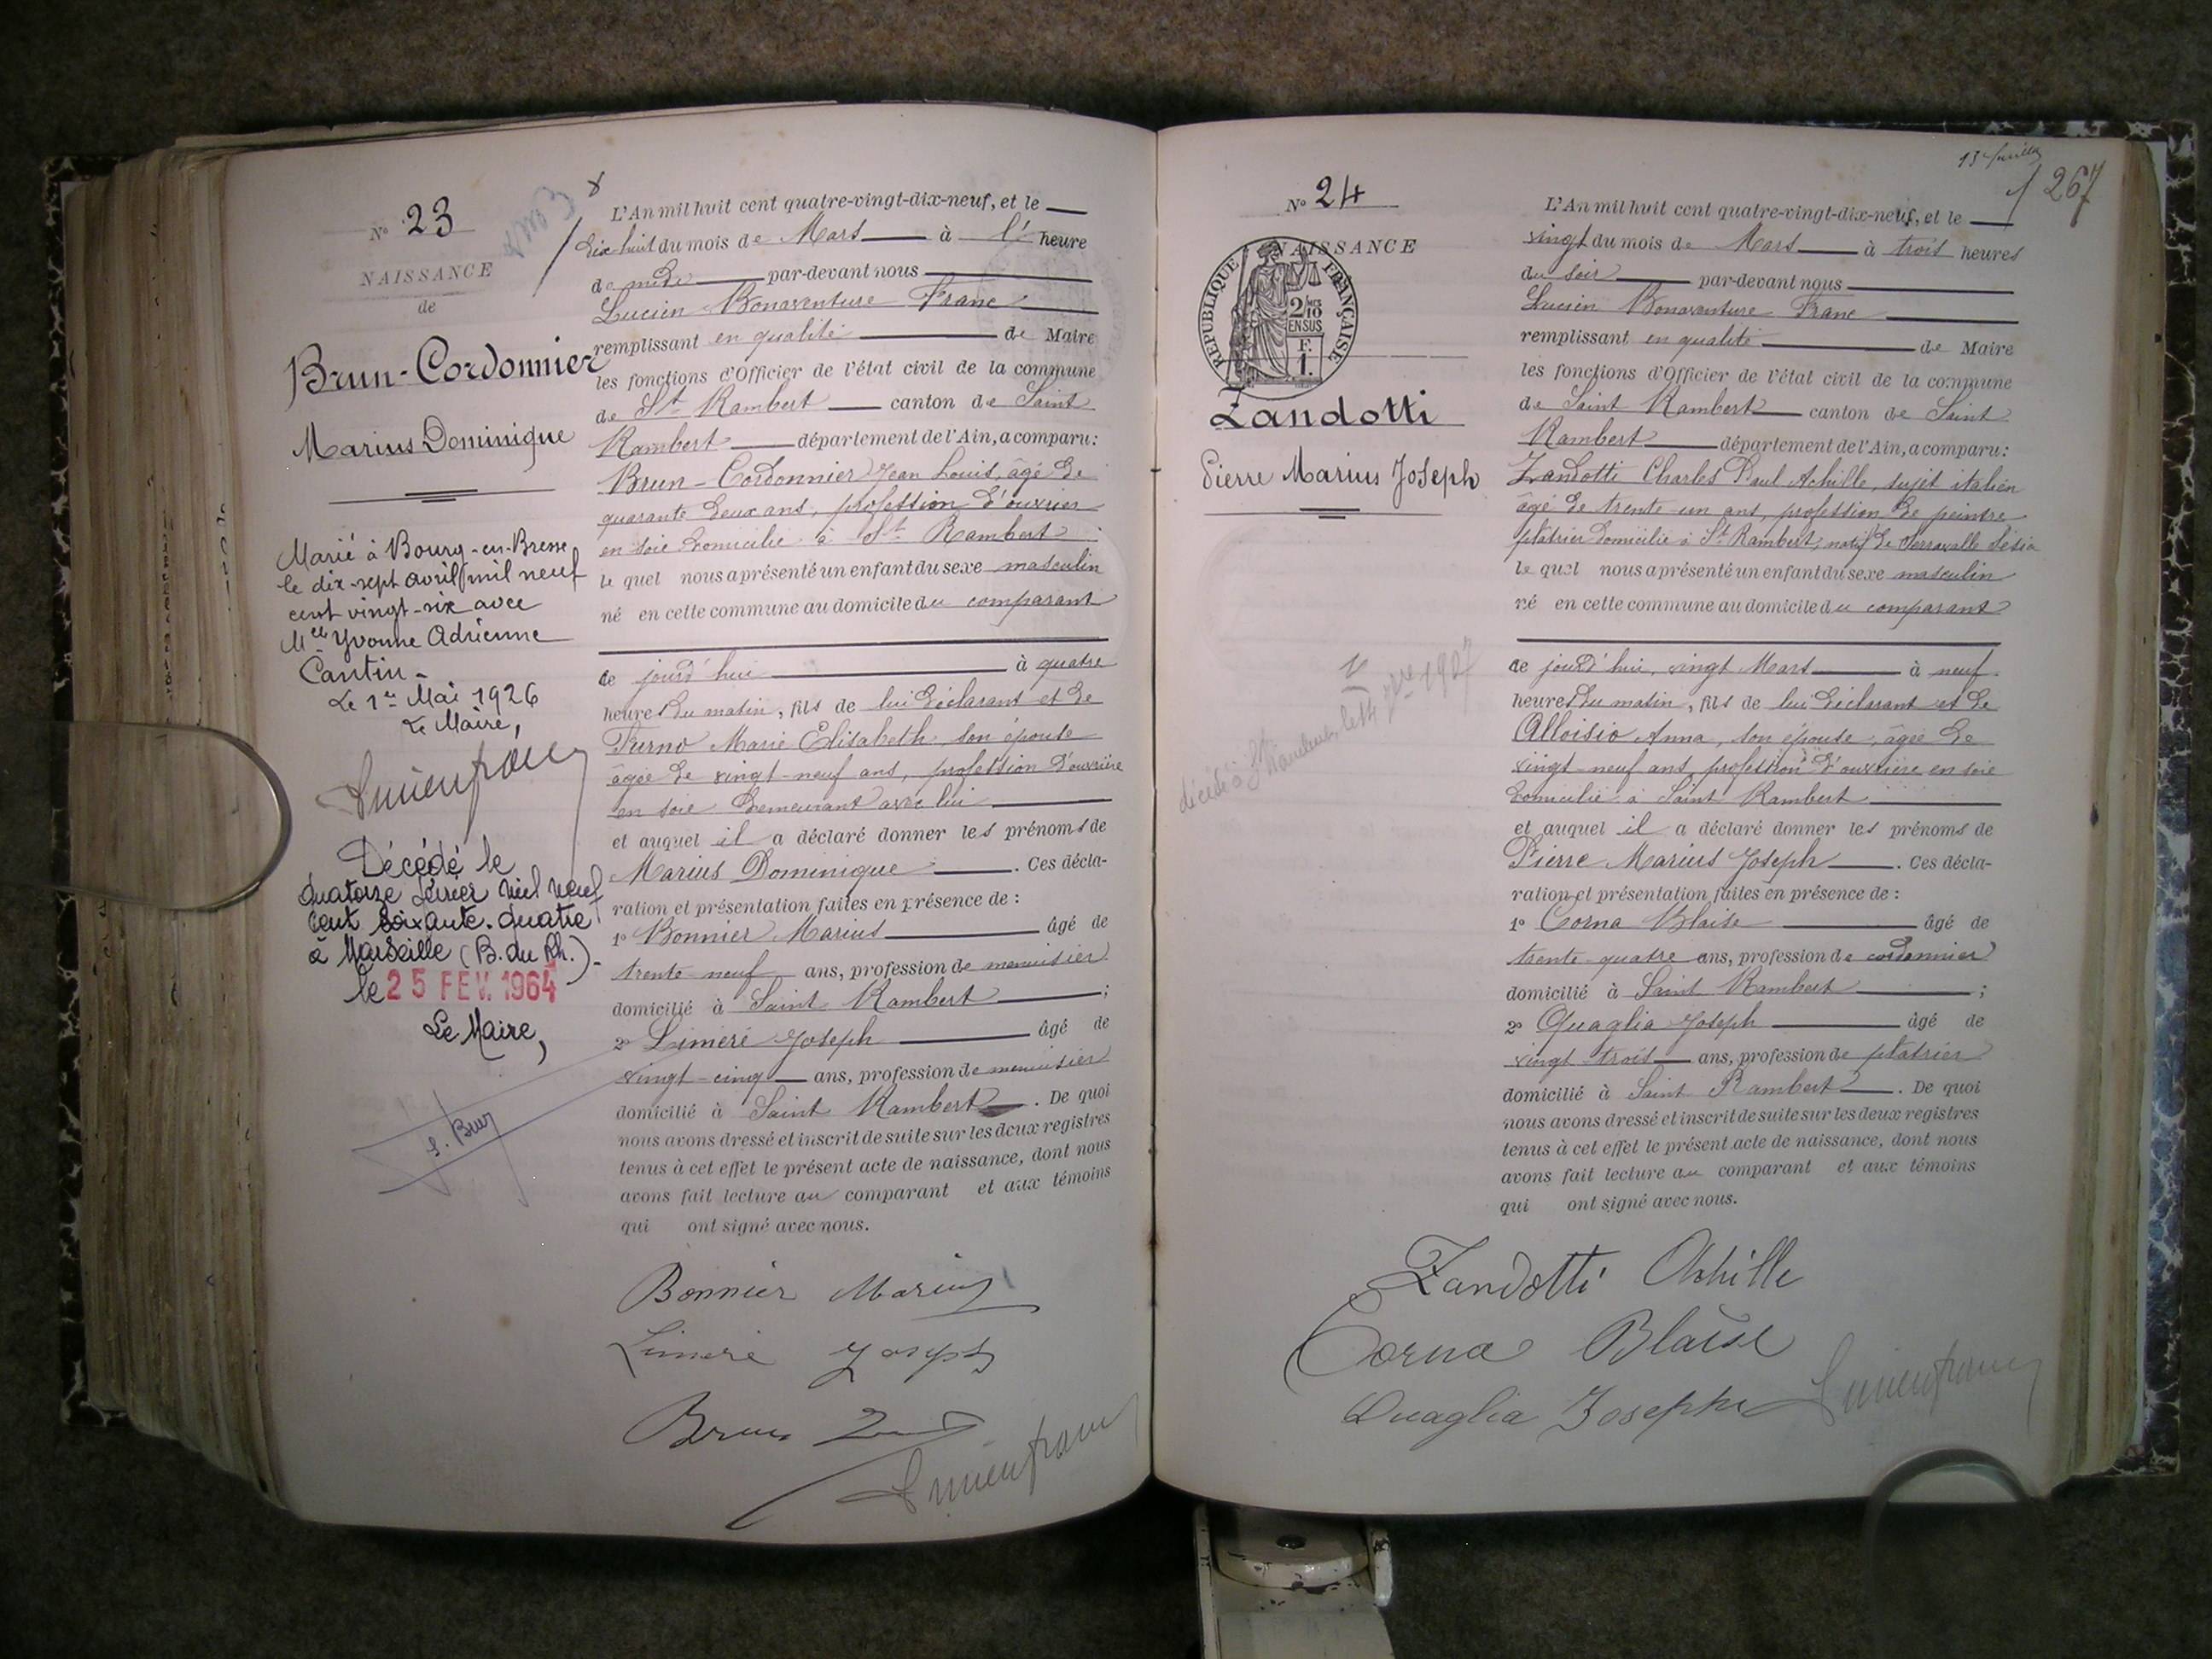 N° 23
NAISSANCE
de
Brun-Cordonnier
Marius Dominique
Marié à Bourg-en-Bresse
le dix-sept avril mil neuf
cent vingt-six avec
Mlle Yvonne Adrienne
Cantin-
Le 1er Mai 1926
Le Maire,
Lucien franc
Décédé le
quatorze février mil neuf
cent soixante-quatre
à Marseille (B. du Rh.)-
le 25 FEV. 1964
Le Maire,
L'An mil huit cent quatre-vingt-dix-neuf, et le
dix huit du mois de Mars à l' heure
de midi par-devant nous
Lucien Bonaventure Franc
remplissant en qualité de Maire
les fonctions d'Officier de l'état civil de la commune
de St Rambert canton de Saint
Rambert département de l'Ain, a comparu:
Brun-Cordonnier Jean Louis, âgé de
quarante deux ans, profession d'ouvrier
en soie domicilié à St Rambert
le quel nous a présenté un enfant du sexe masculin
né en cette commune au domicile du comparant
ce jourd'hui à quatre
heures du matin, fils de lui déclarant et de
Furno Marie Elisabeth, son épouse
âgée de vingt-neuf ans, profession d'ouvrière
en soie demeurant avec lui
et auquel il a déclaré donner les prénoms de
Marius Dominique. Ces décla-
ration et présentation faites en présence de :
1° Bonnier Marius âgé de
trente neuf ans, profession de menuisier
domicilié à Saint Rambert ;
2° Limeré Joseph âgé de
vingt-cinq ans, profession de menuisier
domicilié à Saint Rambert. De quoi
nous avons dressé et inscrit de suite sur les deux registres
tenus à cet effet le présent acte de naissance, dont nous
avons fait lecture au comparant et aux témoins
qui ont signé avec nous.
Bonnier Marius
Limeré Joseph
Brun
Lucien franc
267
N° 24
NAISSANCE
REPUBLIQUE FRANÇAISE
2/10
EN SUS
F.
1.
Zandotti
Pierre Marius Joseph
L'An mil huit cent quatre-vingt-dix-neuf, et le
vingt du mois de Mars à trois heures
du soir par-devant nous
Lucien Bonaventure Franc
remplissant en qualité de Maire
les fonctions d'Officier de l'état civil de la commune
de Saint Rambert canton de Saint
Rambert département de l'Ain, a comparu:
Zandotti Charles Paul Achille, sujet italien
âgé de trente-un ans, profession de peintre
plâtrier domicilié à St Rambert, natif de Serravalle Sésia
le quel nous a présenté un enfant du sexe masculin
né en cette commune au domicile du comparant
ce jourd'hui, vingt Mars à neuf
heures du matin, fils de lui déclarant et de
Alloisio Anna, son épouse, âgée de
vingt-neuf ans profession d'ouvrière en soie
domicilié à Saint Rambert
et auquel il a déclaré donner les prénoms de
Pierre Marius Joseph. Ces décla-
ration et présentation faites en présence de :
1° Corna Blaise âgé de
trente quatre ans, profession de cordonnier
domicilié à Saint Rambert ;
2° Quaglia Joseph âgé de
vingt-trois ans, profession de plâtrier
domicilié à Saint Rambert. De quoi
nous avons dressé et inscrit de suite sur les deux registres
tenus à cet effet le présent acte de naissance, dont nous
avons fait lecture au comparant et aux témoins
qui ont signé avec nous.
Zandotti Achille
Corna Blaise
Quaglia Josephe
Lucien franc